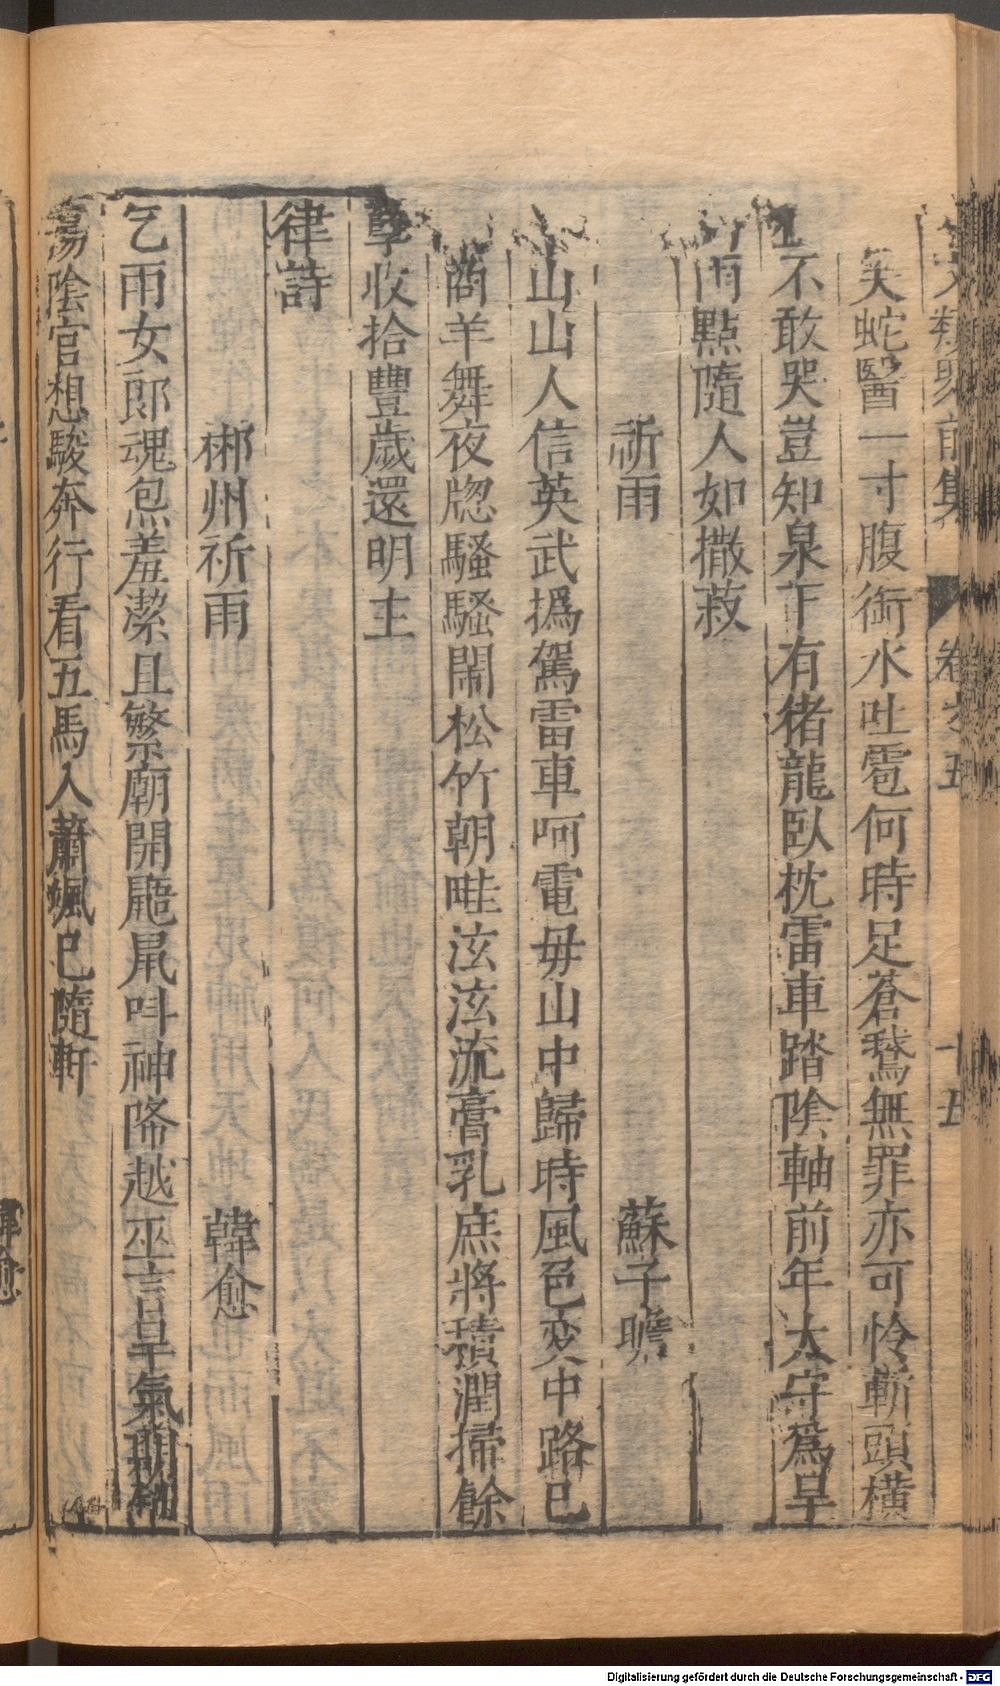 文類聚前集 卷之五 十五
矣蛇醫一寸腹銜水吐雹何時足蒼鵞無罪亦可怜斬頭橫
不敢哭豈知泉下有猪龍臥枕雷車踏陰軸前年太守爲旱
雨點隨人如撒菽
祈雨 蘇子瞻
山山人信英武撝駕雷車呵電毋山中歸時風色変中路已
商羊舞夜牕騷騷鬧松竹朝畦泫泫流膏乳庶將積潤掃餘
孽收拾豐歲還明主
律詩
郴州祈雨 韓愈
乞雨女郎魂炰羞潔且繁廟開鼯鼠呌神降越巫言旱氣期銷
蕩陰官想駿奔行看五馬入蕭颯已隨軒
韓愈
Digitalisierung gefördert durch die Deutsche Forschungsgemeinschaft - DFG